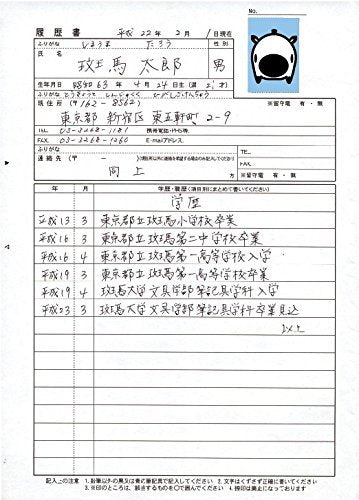 履歴書 平成22年2月1日現在
ふりがな しまうま たろう 性別
氏名 斑馬 太郎 男
生年月日 昭和63年4月24日生(満21才)
ふりがな とうきょうと しんじゅくく ひがしごけんちょう
現住所(〒162-8562) ※留守電 有・無
東京都 新宿区 東五軒町 2-9
TEL. 03-3268-1181 携帯電話・PHS等.
FAX. 03-3268-1260 E-mailアドレス
ふりがな TEL.
連絡先(〒 - )(現住所以外に連絡を希望する場合のみ記入してください)
同上 FAX.
※留守電 有・無
年 月 学歴・職歴(項目別にまとめて書いてください)
学歴
平成13 3 東京都立斑馬小学校卒業
平成16 3 東京都立斑馬第二中学校卒業
平成16 4 東京都立斑馬第一高等学校入学
平成19 3 東京都立斑馬第一高等学校卒業
平成19 4 斑馬大学文具学部筆記具学科入学
平成23 3 斑馬大学文具学部筆記具学科卒業見込
以上
記入上の注意 1.鉛筆以外の黒又は青の筆記具で記入してください 2.文字はくずさず正確に書いてください
3.※印のところは、該当するものを○で囲んでください 4.捺印は廃止になっております